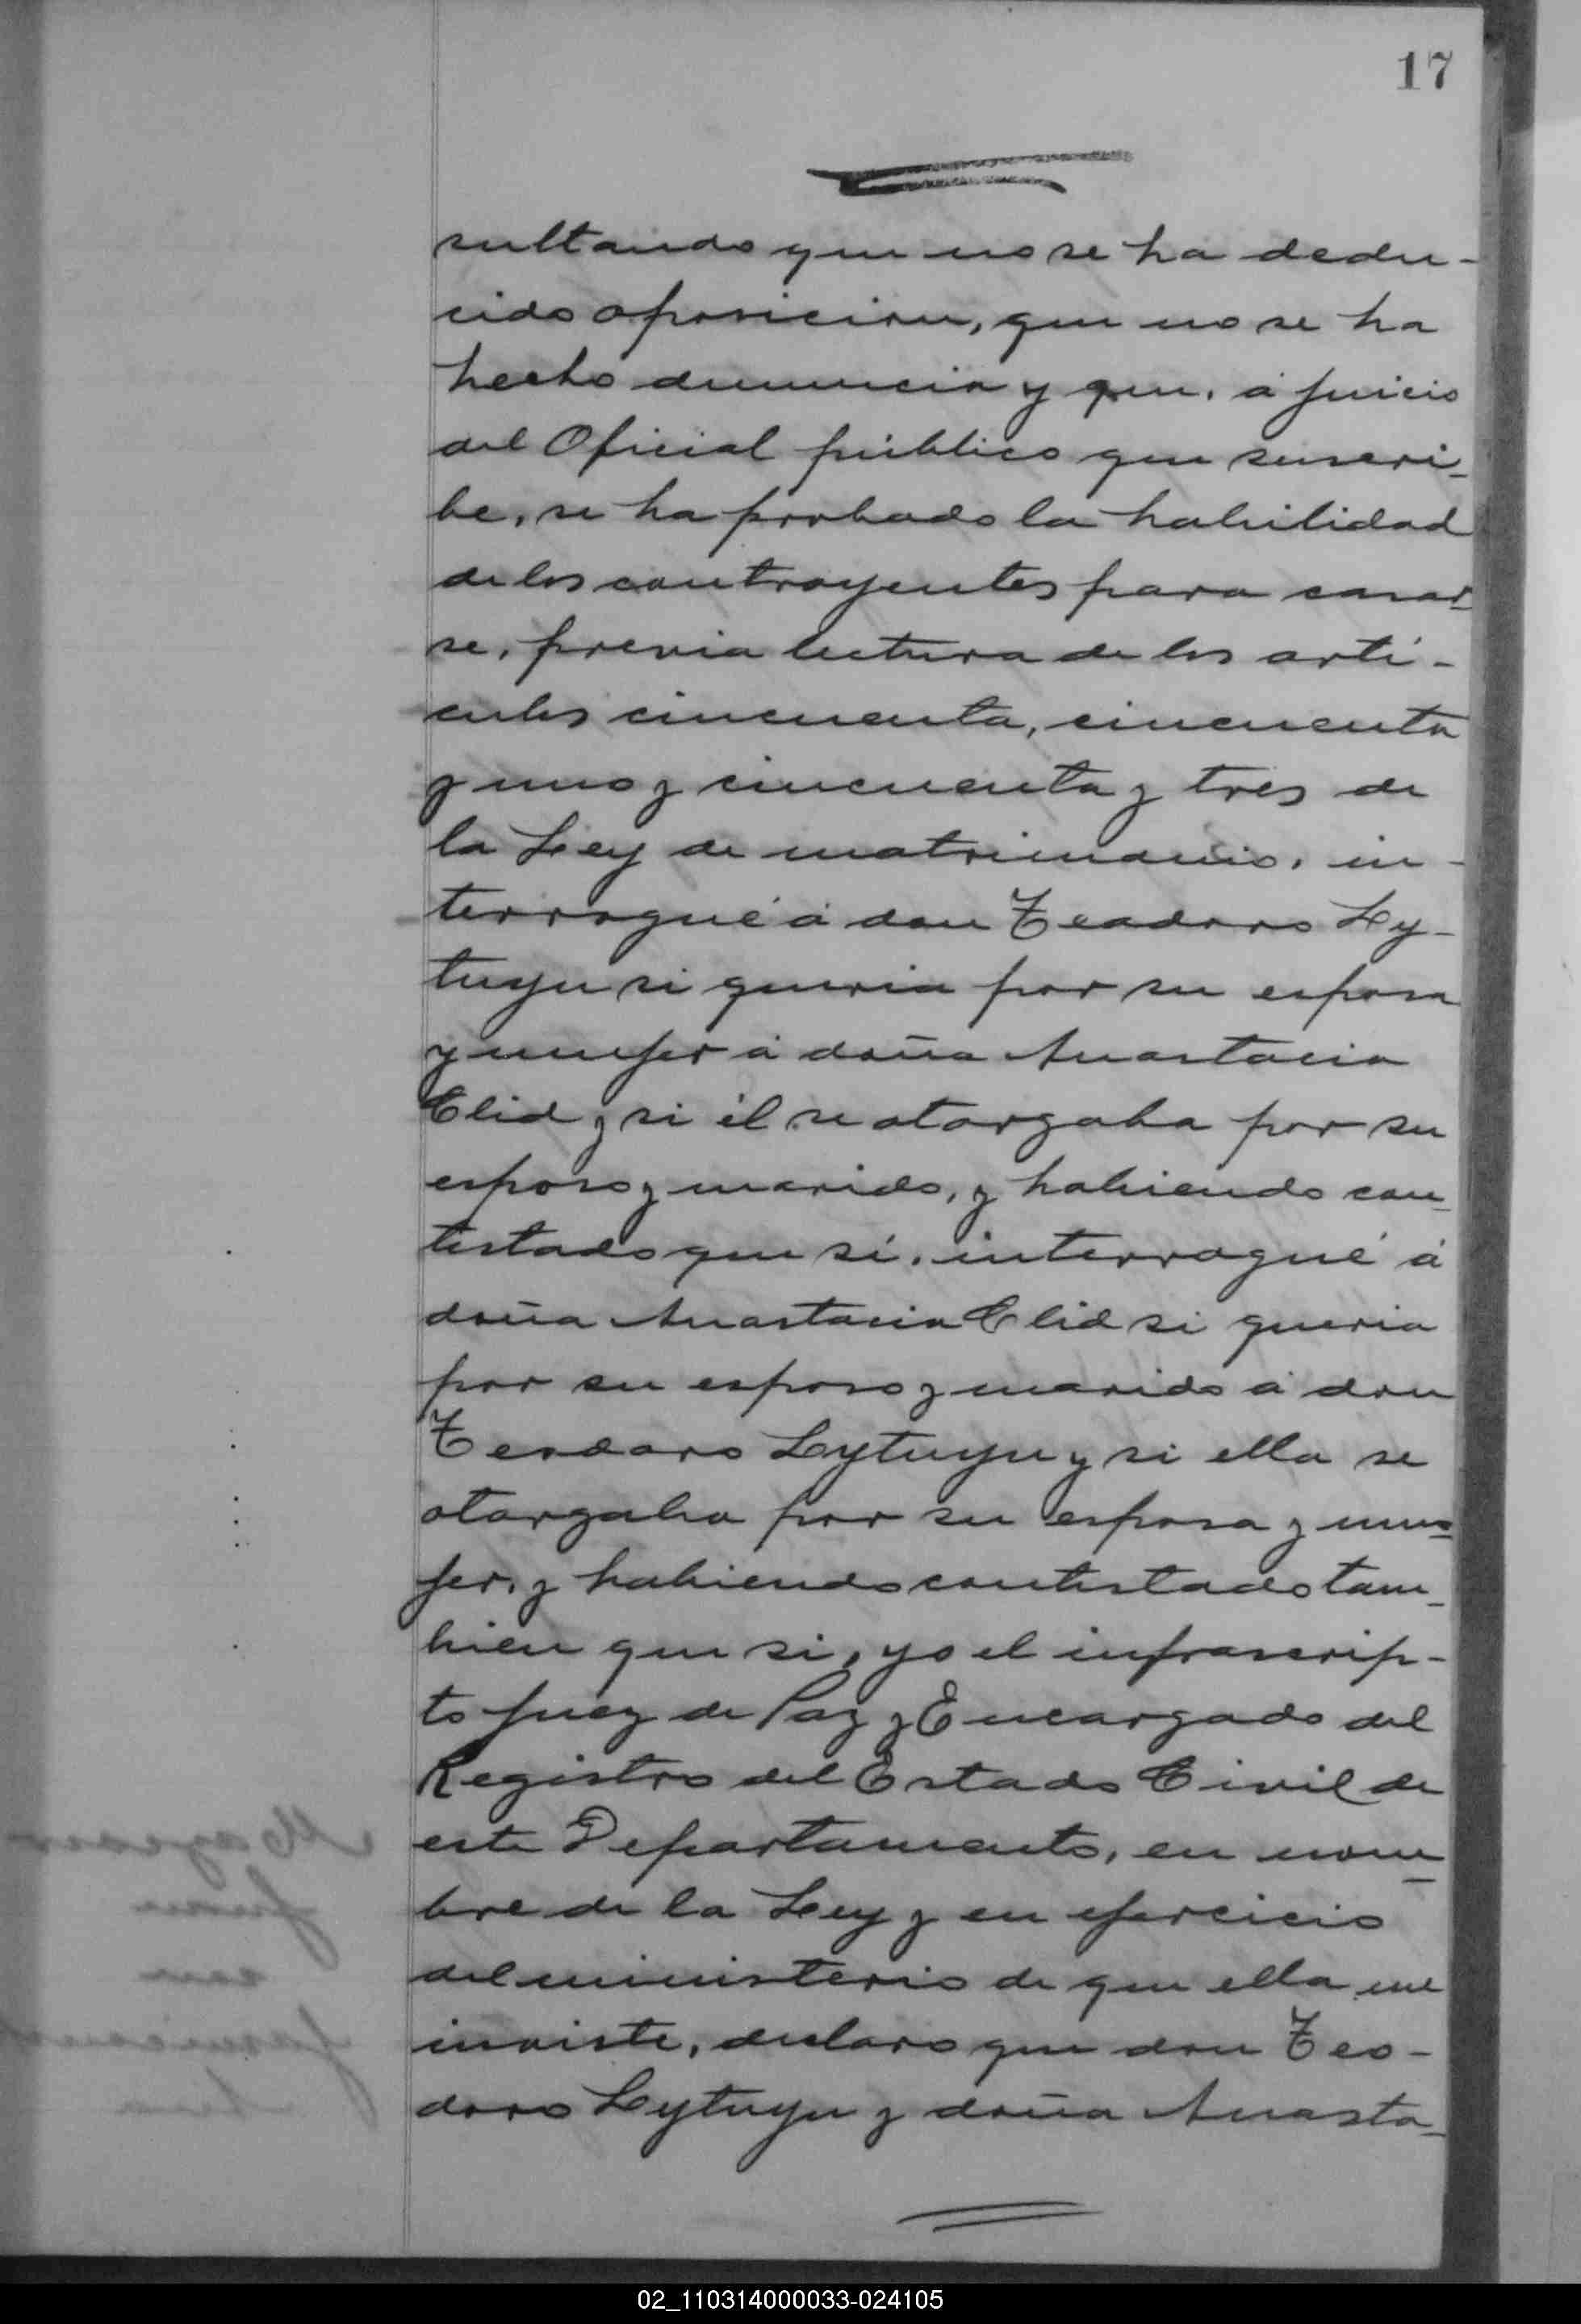 17
sultando que no se ha dedu-
cido oposicion, que no se ha
hecho denuncia y que, á juicio
del Oficial público que suscri-
be, se ha probado la habilidad
de los contrayentes para casar-
se, previa lectura de los artí-
culos cincuenta, cincuenta
y uno y cincuenta y tres de
la Ley de matrimonio, in-
terrogué á don Teodoro Ly-
tuyu si queria por su esposa
y mujer á doña Anastacia
Clid y si él se otorgaba por su
esposo y marido, y habiendo con-
testado que sí, interrogué á
doña Anastacia Clid si queria
por su esposo y marido á don
Teodoro Lytuyu y si ella se
otorgaba por su esposa y mu-
jer, y habiendo contestado tam-
bien que si, yo el infrascrip-
to Juez de Paz y Encargado del
Registro del Estado Civil de
este Departamento, en nom-
bre de la Ley y en ejercicio
del ministerio de que ella me
inviste, declaro que don Teo-
doro Lytuyu y doña Anasta-
02_110314000033-024105